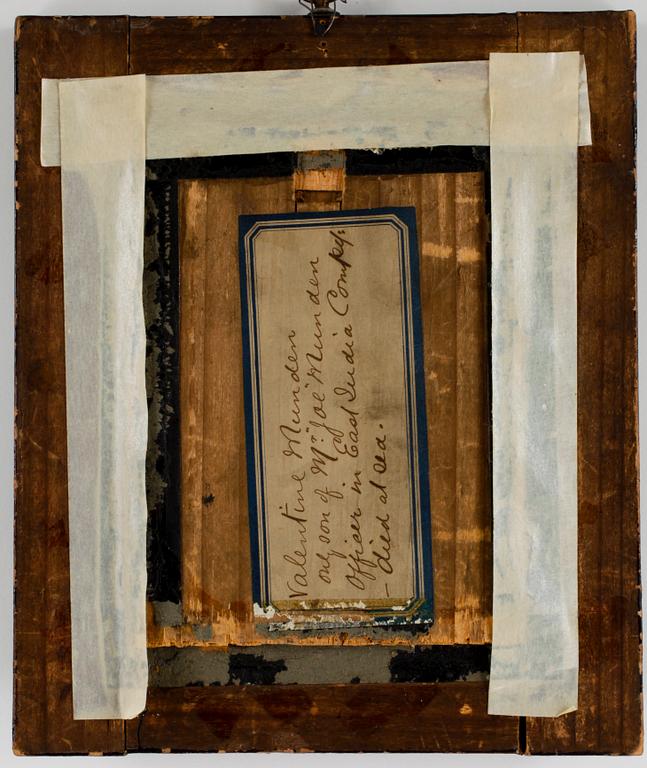 Valentine Munden
only son of Mr. "Joe" Munden
Officer in East India Compy:
- died at sea.